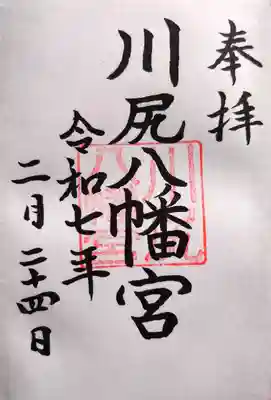 奉拝
川尻八幡宮
令和七年
二月二十四日